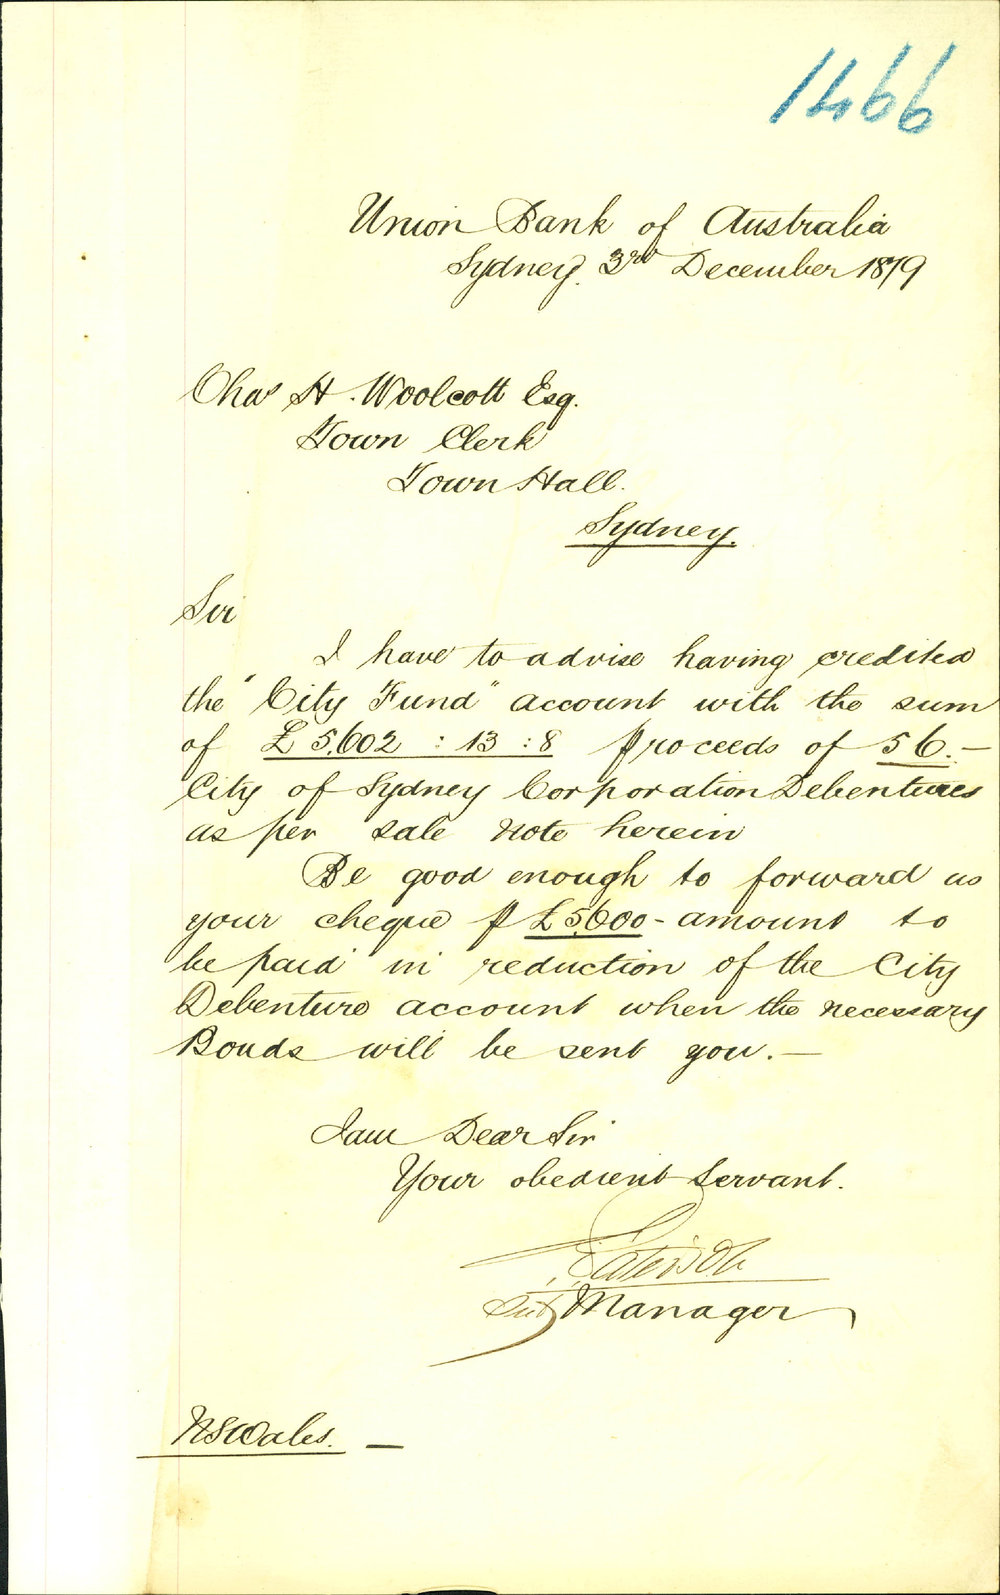 1466
Union Bank of Australia
Sydney. 3rd December 1879
Chas H. Woolcott Esq.
Town Clerk
Town Hall.
Sydney.
Sir
I have to advise having credited
the "City Fund" account with the sum
of £5,602 : 13 : 8 proceeds of 56.-
City of Sydney Corporation Debentures
as per sale note herein
Be good enough to forward us
your cheque p £5,600 - amount to
be paid in reduction of the City
Debenture account when the necessary
Bonds will be sent you. —
I am Dear Sir
Your obedient servant.
Sub Manager
NSWales. —